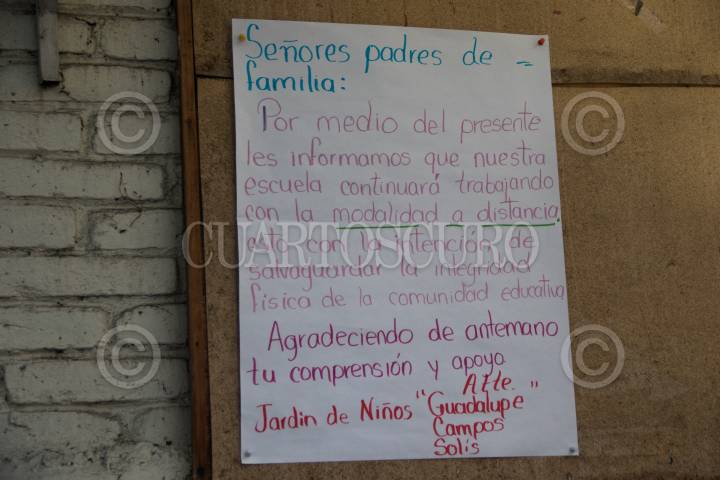 Señores padres de =
familia:
Por medio del presente
les informamos que nuestra
escuela continuará trabajando
con la modalidad a distancia,
esto con la intención de
salvaguardar la integridad
física de la comunidad educativa
Agradeciendo de antemano
tu comprensión y apoyo
Atte.
Jardin de Niños "Guadalupe"
Campos
Solís
CUARTOSCURO
©
©
©
©